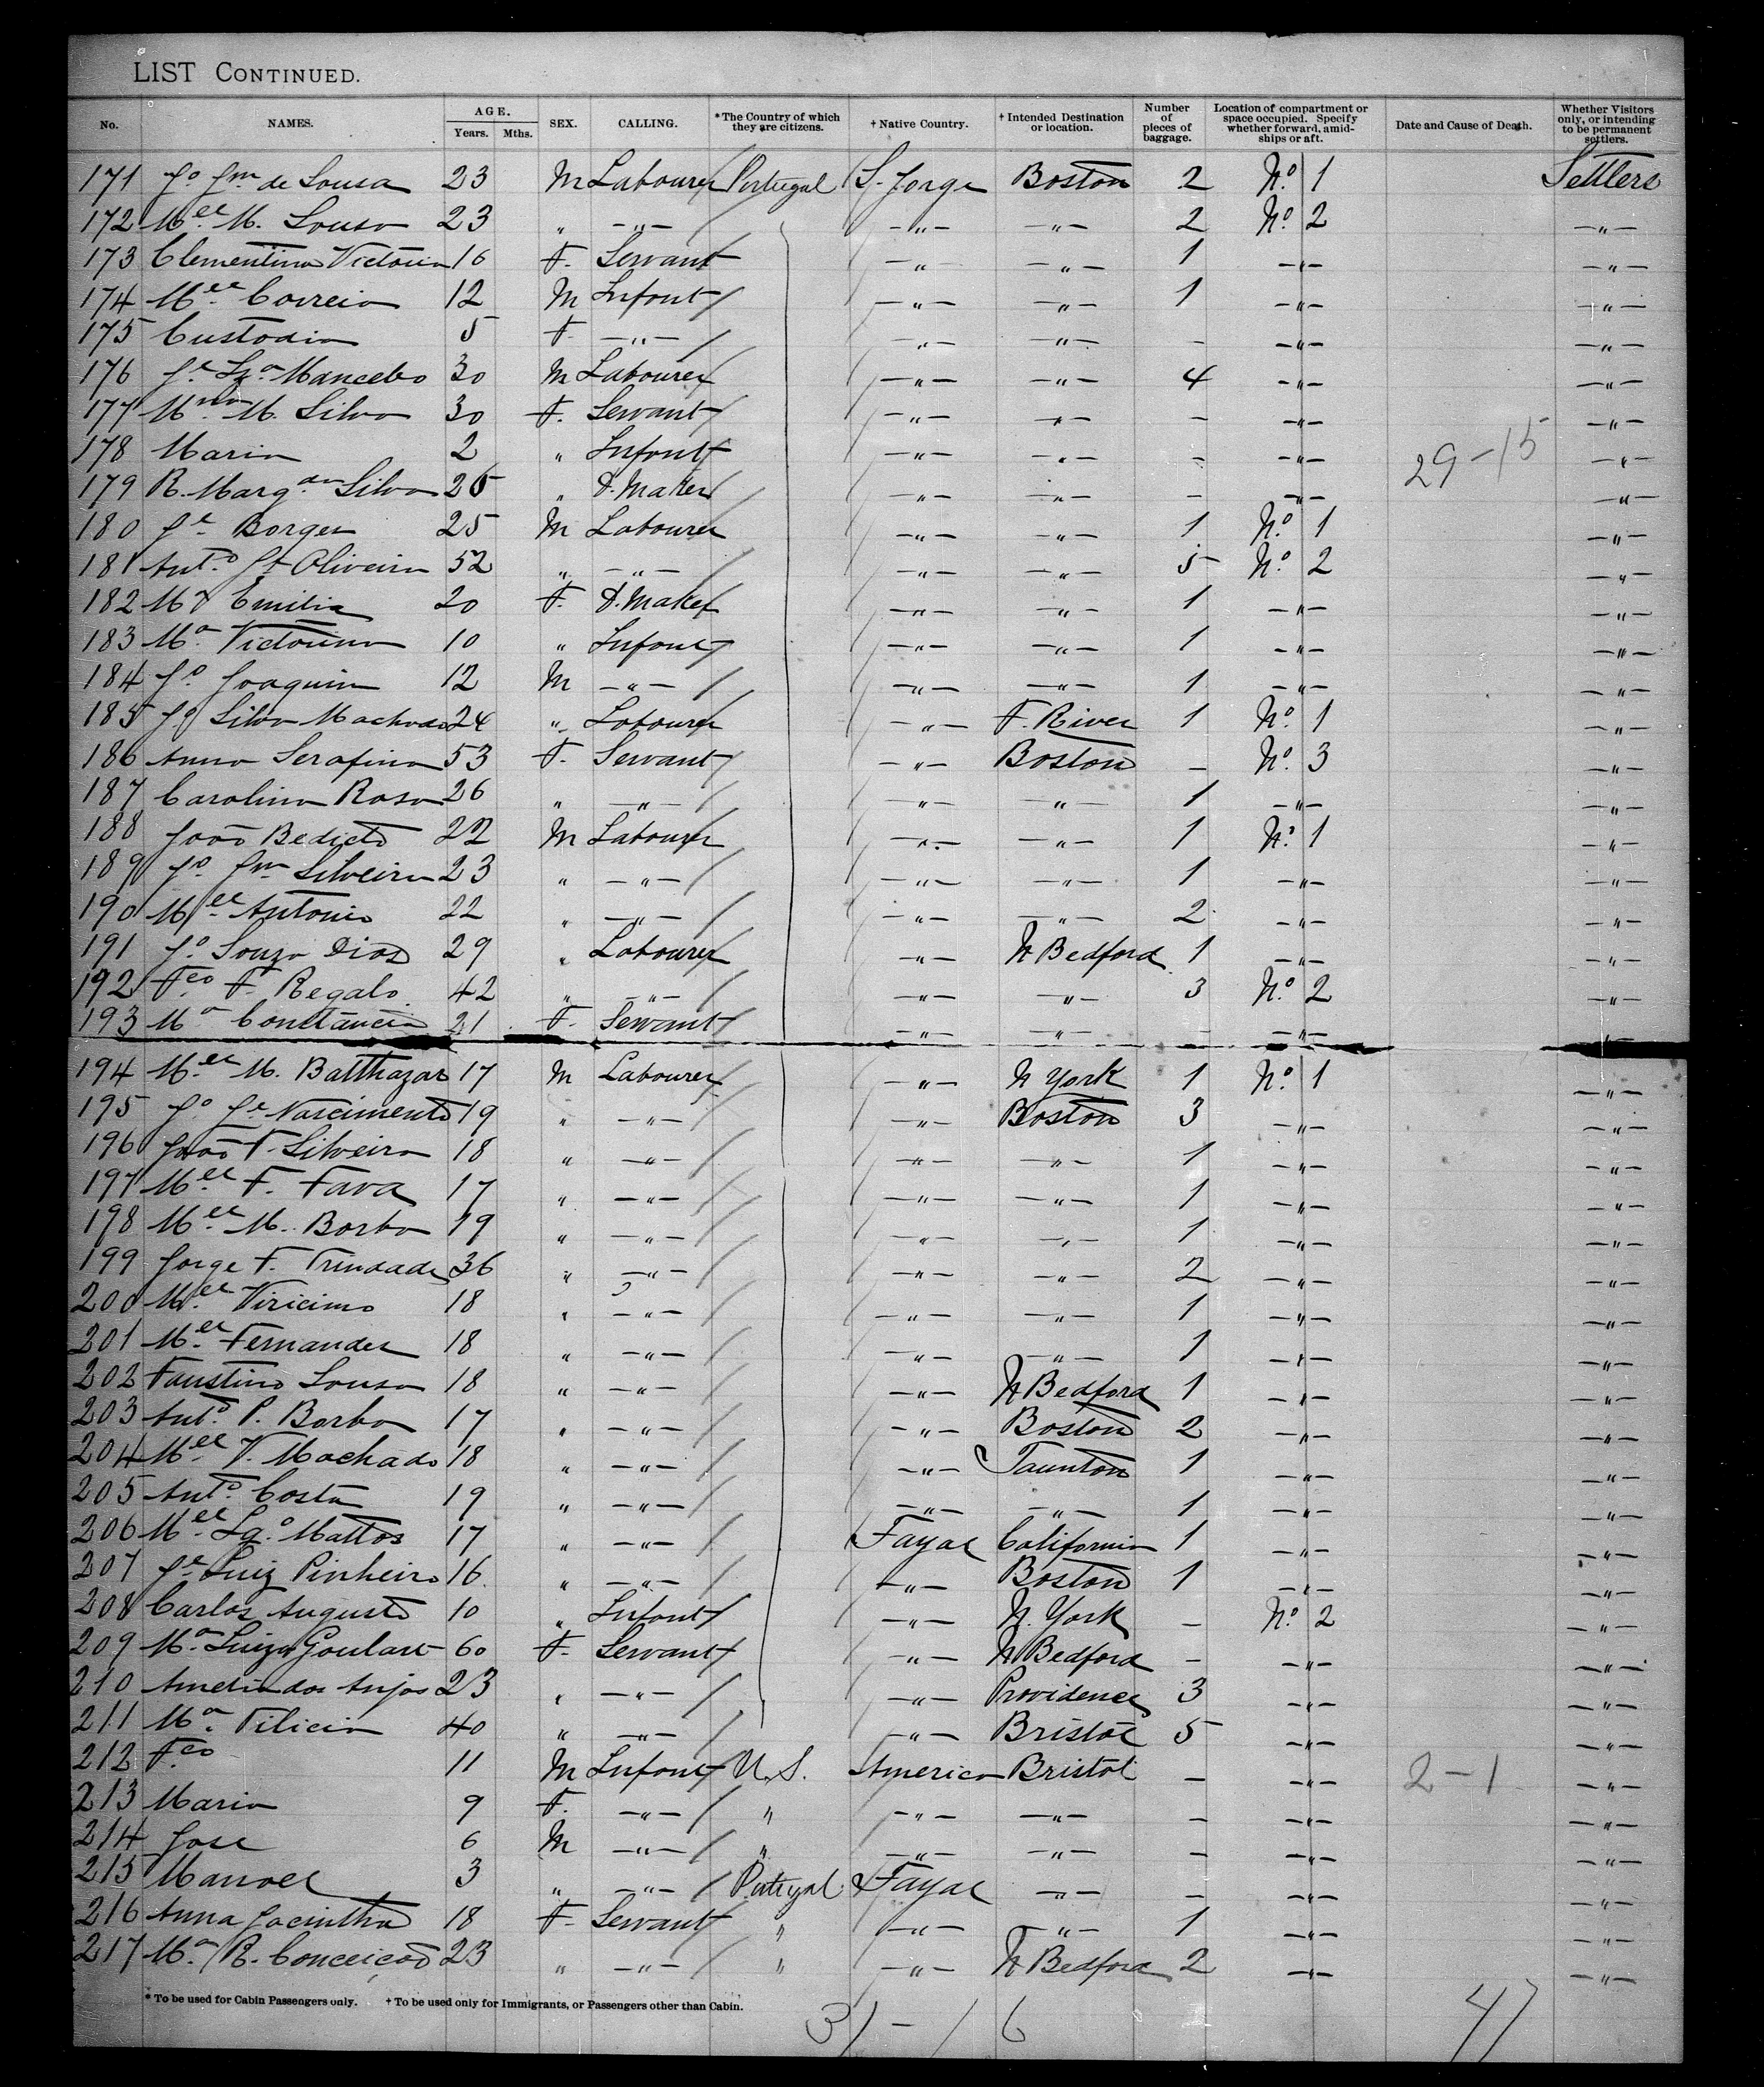 LIST CONTINUED.
No. NAMES. AGE. Years. Mths. SEX. CALLING. *The Country of which they are citizens. † Native Country. † Intended Destination or location. Number of pieces of baggage. Location of compartment or space occupied. Specify whether forward, amid-ships or aft. Date and Cause of Death. Whether Visitors only, or intending to be permanent settlers.
171 Jo Jm de Sousa 23 M Labourer Portugal S. Jorge Boston 2 No. 1 Settlers
172 Mel M. Sousa 23 " —"— —"— —"— 2 No. 2 —"—
173 Clementina Victoria 16 F. Servant —"— —"— 1 —"— —"—
174 Mel Correia 12 M Infant —"— —"— 1 —"— —"—
175 Custodia 5 F —"— —"— —"— - —"— —"—
176 Je Mancebo 30 M Labourer —"— —"— 4 —"— —"—
177 M. Silva 30 F. Servant —"— —"— - —"— —"—
178 Maria 2 " Infant —"— —"— - —"— 29-15 —"—
179 R. Margda Silva 26 " D. Maker —"— —"— - —"— —"—
180 Je Borges 25 M Labourer —"— —"— 1 No. 1 —"—
181 Anto. Je Oliveira 52 " —"— —"— —"— 5 No. 2 —"—
182 Ma Emilia 20 F. D. Maker —"— —"— 1 —"— —"—
183 Ma Victorina 10 " Infant —"— —"— 1 —"— —"—
184 Jo Joaquim 12 M —"— —"— —"— 1 —"— —"—
185 Jo Silva Machado 24 " Labourer —"— F. River 1 No. 1 —"—
186 Anna Serafina 53 F. Servant —"— Boston - No. 3 —"—
187 Carolina Rosa 26 " —"— —"— —"— 1 —"— —"—
188 João Bedicto 22 M Labourer —"— —"— 1 No. 1 —"—
189 Jo Jm Silveira 23 " —"— —"— —"— 1 —"— —"—
190 Mel Antonio 22 " —"— —"— —"— 2 —"— —"—
191 Jo Souza Dias 29 " Labourer —"— N Bedford 1 —"— —"—
192 Fco F. Regalo 42 " —"— —"— —"— 3 No. 2 —"—
193 Ma Constancia 21 F. Servant —"— —"— - —"— —"—
194 Mel M. Balthazar 17 M Labourer —"— N York 1 No. 1 —"—
195 Jo Je Nascimento 19 " —"— —"— Boston 3 —"— —"—
196 João F. Silveira 18 " —"— —"— —"— 1 —"— —"—
197 Mel F. Fava 17 " —"— —"— —"— 1 —"— —"—
198 Mel M. Borba 19 " —"— —"— —"— 1 —"— —"—
199 Jorge F. Trindade 36 " —"— —"— —"— 2 —"— —"—
200 Mel Viricimo 18 " —"— —"— —"— 1 —"— —"—
201 Mel Fernandes 18 " —"— —"— —"— 1 —"— —"—
202 Faustino Sousa 18 " —"— —"— N Bedford 1 —"— —"—
203 Anto. P. Borba 17 " —"— —"— Boston 2 —"— —"—
204 Mel V. Machado 18 " —"— —"— Taunton 1 —"— —"—
205 Anto. Costa 19 " —"— —"— —"— 1 —"— —"—
206 Mel Lço. Mattos 17 " —"— Fayal California 1 —"— —"—
207 Je Luiz Pinheiro 16 " —"— —"— Boston 1 —"— —"—
208 Carlos Augusto 10 " Infant —"— N. York - No. 2 —"—
209 Ma Luiza Goulart 60 F. Servant —"— N Bedford - —"— —"—
210 Amelia dos Anjos 23 " —"— —"— Providence 3 —"— —"—
211 Ma. Filicia 40 " —"— —"— Bristol 5 —"— —"—
212 Fco 11 M Infant U.S. America Bristol - —"— 2-1 —"—
213 Maria 9 F. —"— " —"— —"— - —"— —"—
214 Jose 6 M —"— " —"— —"— - —"— —"—
215 Manoel 3 " —"— Portugal Fayal —"— - —"— —"—
216 Anna Jacintha 18 F. Servant " —"— —"— 1 —"— —"—
217 Ma. R. Conceição 23 " —"— " —"— N Bedford 2 —"— —"—
* To be used for Cabin Passengers only. † To be used only for Immigrants, or Passengers other than Cabin.
31 - 16 47